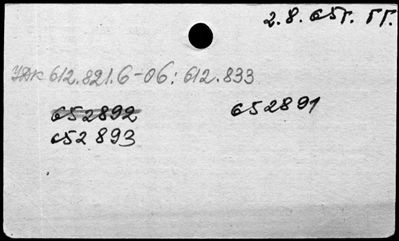 2.8.65г. ГГ.
УДК 612.821.6-06:612.833
652892 652891
652893